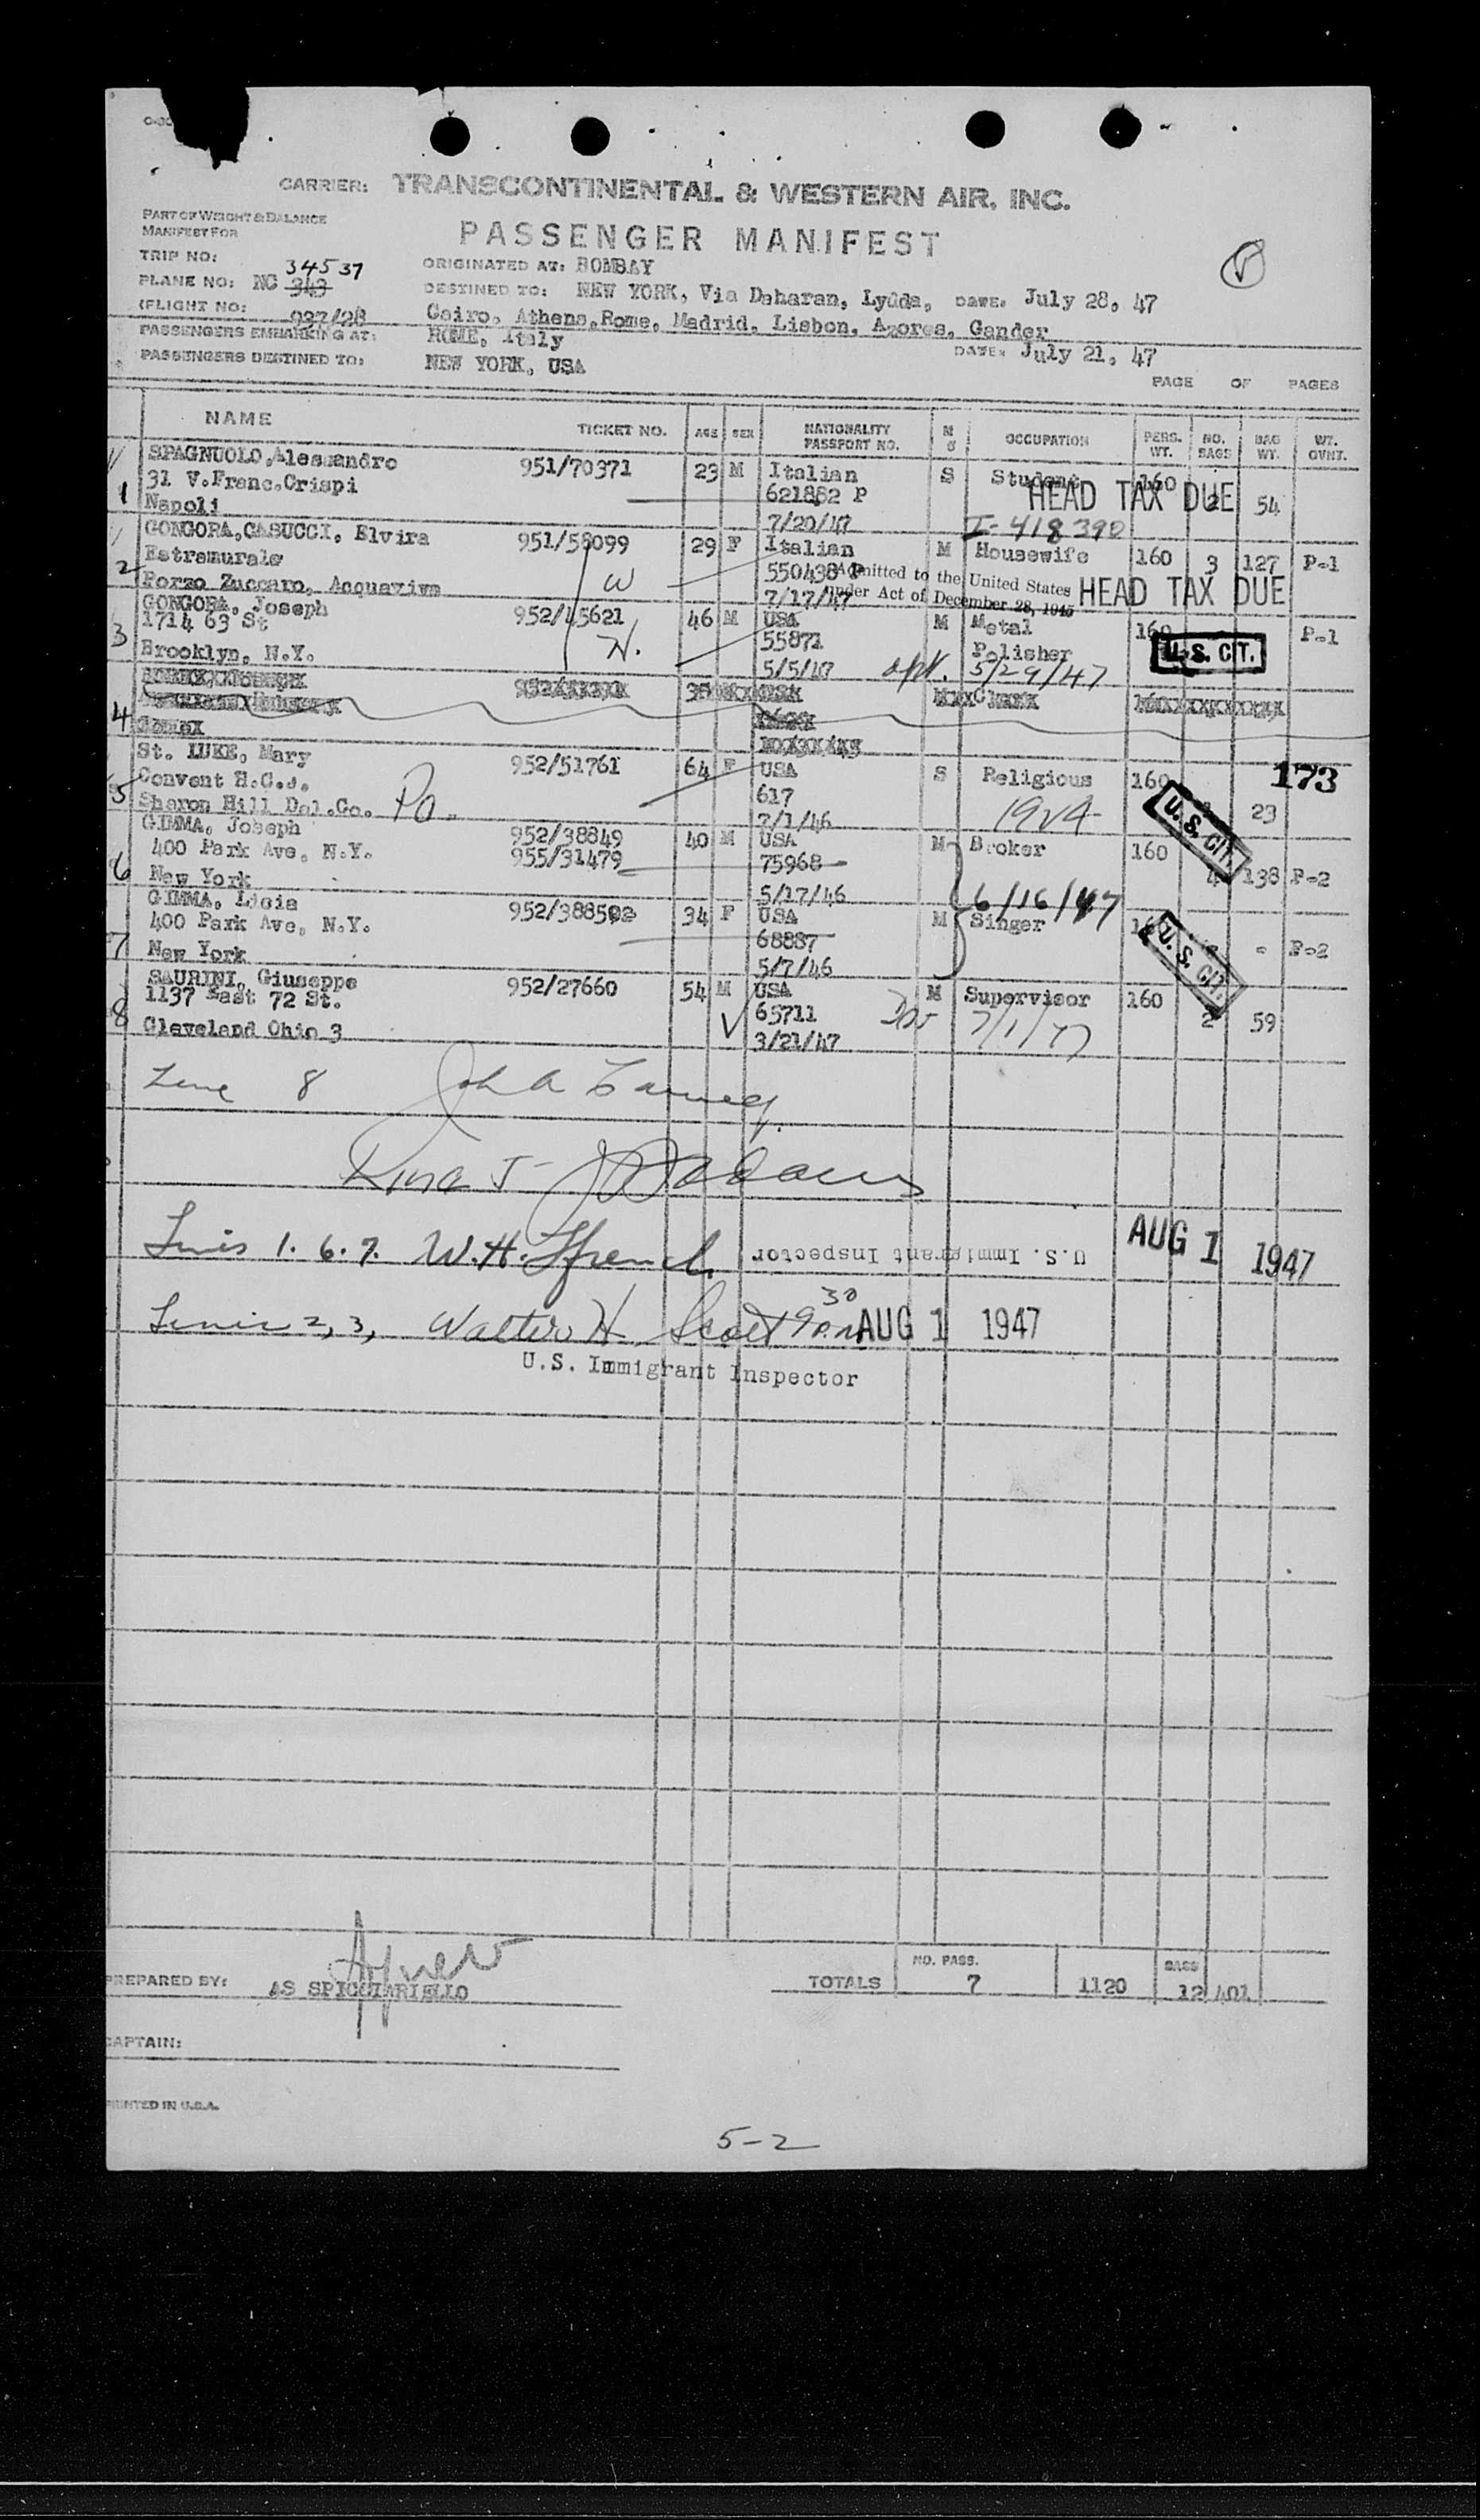 CARRIER: TRANSCONTINENTAL & WESTERN AIR, INC.
PART OF WEIGHT & BALANCE
MANIFEST FOR
PASSENGER MANIFEST
TRIP NO: 34537
ORIGINATED AT: BOMBAY
PLANE NO: NC 343
DESTINED TO: NEW YORK, Via Daharan, Lydda, DATE: July 28, 47
(FLIGHT NO: 937/28
Cairo, Athens, Rome, Madrid, Lisbon, Azores, Gander
PASSENGERS EMBARKING AT: ROME, Italy
DATE: July 21, 47
PASSENGERS DESTINED TO: NEW YORK, USA
PAGE OF PAGES
NAME TICKET NO. AGE SEX NATIONALITY PASSPORT NO. M S OCCUPATION PERS. WT. NO. BAGS BAG WT. WT. GVNT.
SPAGNUOLO, Alessandro 951/70371 23 M Italian S Student 160
31 V. Franc. Crispi 621882 P HEAD TAX DUE 2 54
1 Napoli 7/20/47 I-418390
GONGORA, CASUCCI, Elvira 951/58099 29 F Italian M Housewife 160 3 127 P-1
Estramurale W 550438 P Admitted to the United States HEAD TAX DUE
2 Porzo Zuccaro, Acquaviva 7/17/47 under Act of December 28, 1945
GONGORA, Joseph 952/45621 46 M USA M Metal 160 P-1
1714 63 St H. 55871 Polisher U.S. CIT.
3 Brooklyn, N.Y. 5/5/47 5/29/47
4
St. LUKE, Mary 952/51761 64 F USA S Religious 160 173
Convent H.C.J. 617 23
5 Sharon Hill Del.Co. Pa. 7/1/46 U.S. CIT.
GIMMA, Joseph 952/38849 40 M USA M Broker 160
400 Park Ave, N.Y. 955/31479 75968 4 138 P-2
6 New York 5/17/46 6/16/47
GIMMA, Licia 952/388502 34 F USA M Singer P-2
400 Park Ave, N.Y. 68887 U.S. CIT.
7 New York 5/7/46
SAURINI, Giuseppe 952/27660 54 M USA M Supervisor 160
1137 East 72 St. 65711 2 59
8 Cleveland Ohio 3 3/21/47
Line 8
Lines 1. 6. 7. W.H. Ffrench U.S. Immigrant Inspector AUG 1 1947
Lines 2, 3, Walter H. Scott 9 30 AUG 1 1947
U.S. Immigrant Inspector
PREPARED BY: AS SPICCIARIELLO
TOTALS NO. PASS. 7 1120 BAGS 12 401
CAPTAIN:
PRINTED IN U.S.A.
5-2